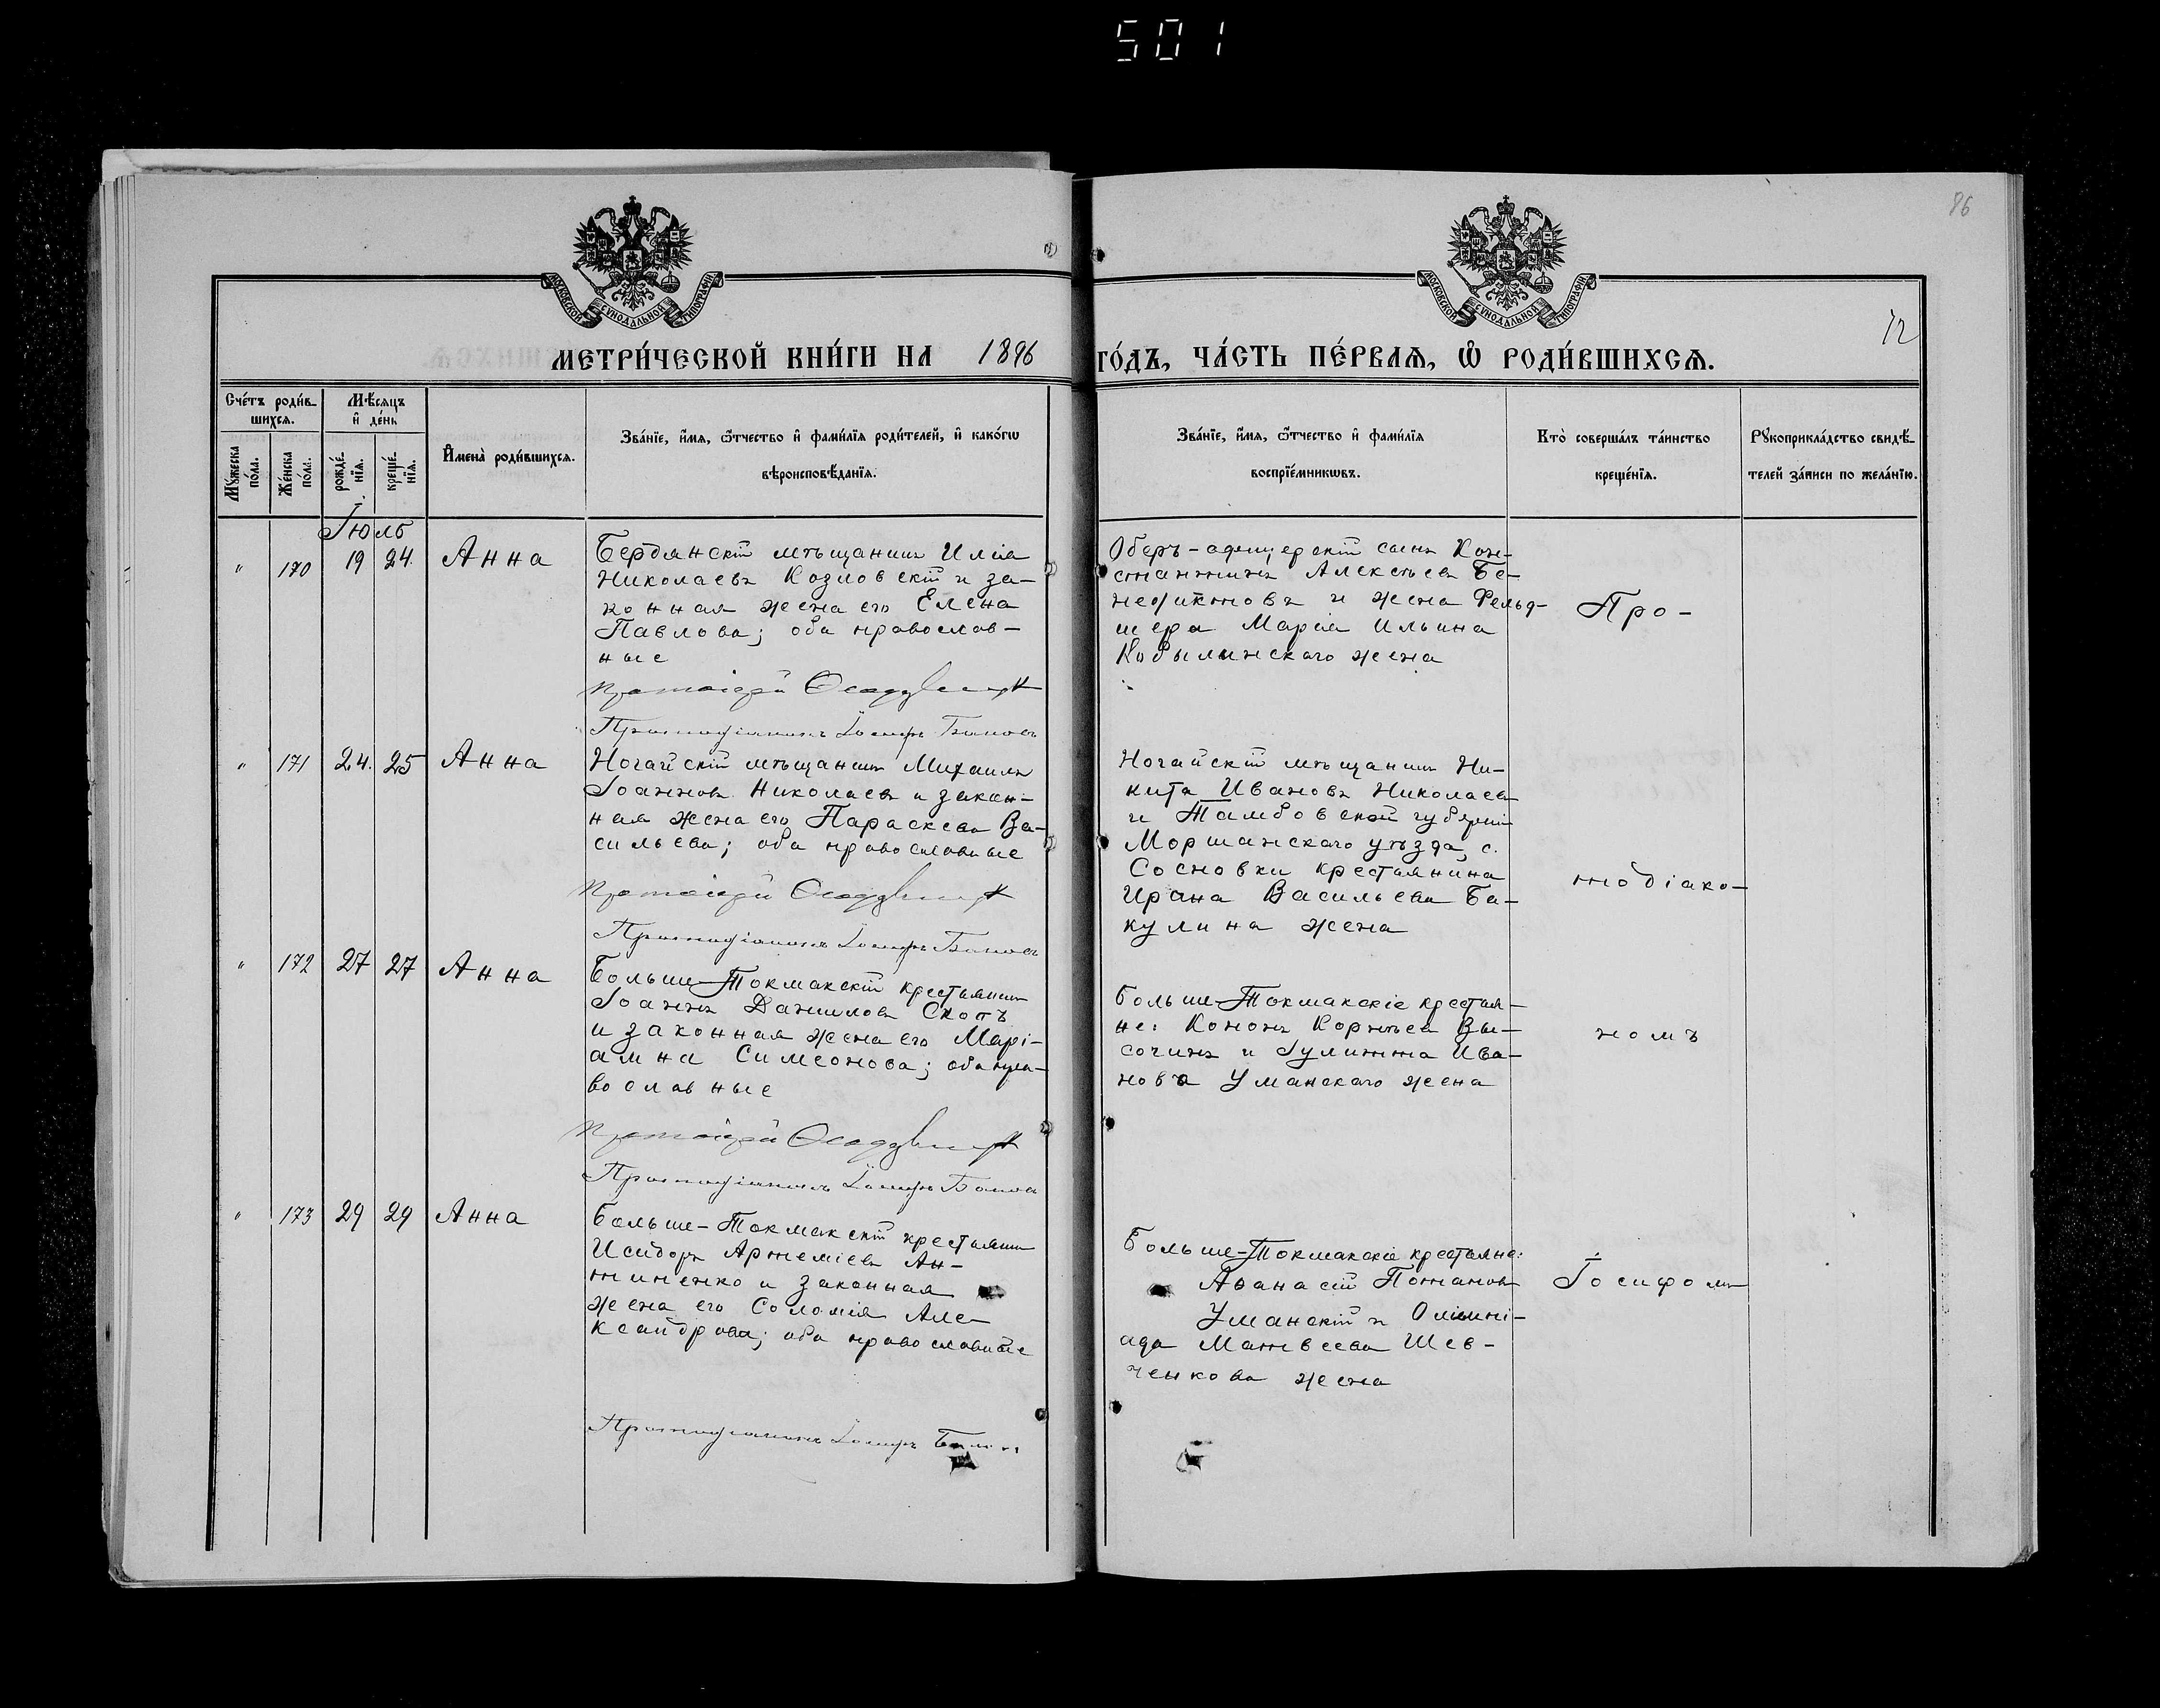 501
86
МОСКОВСКОЙ СѴНОДАЛЬНОЙ ТИПОГРАФІИ
МОСКОВСКОЙ СѴНОДАЛЬНОЙ ТИПОГРАФІИ
12
МЕТРИ́ЧЕСКОЙ КНИ́ГИ НА 1896 ГО́ДЪ, ЧА́СТЬ ПЕ́РВАѦ, Ѡ҆ РОДИ́ВШИХСѦ.
Сче́тъ роди́в-
шихсѧ.
Мꙋ́жеска по́ла.
Же́нска по́ла.
Мѣ́сѧцъ и҆ де́нь
рожде́-нїѧ.
креще́-нїѧ.
И҆мена̀ роди́вшихсѧ.
Зва́нїе, и҆́мѧ, ѻ҆́тчество и҆ фами́лїѧ роди́телей, и҆ како́гѡ
вѣроисповѣ́данїѧ.
Зва́нїе, и҆́мѧ, ѻ҆́тчество и҆ фами́лїѧ
воспрїе́мникѡвъ.
Кто̀ соверша́лъ та́инство
креще́нїѧ.
Рꙋкоприкла́дство свидѣ́-
телей за́писи по жела́нїю.
Іюль
" 170 19 24. Анна
Бердянскій мѣщанинъ Илія
Николаевъ Козловскій и за-
конная жена его Елена
Павлова; оба православ-
ные
Протоіерей
Протодіаконъ Іосифъ
Оберъ-офицерскій сынъ Кон-
стантинъ Алексѣевъ Бе-
недиктовъ и жена Фельд-
шера Марія Ильина
Кобылинскаго жена
Про-
" 171 24. 25 Анна
Ногайскій мѣщанинъ Михаилъ
Іоанновъ Николаевъ и закон-
ная жена его Параскева Ва-
сильева; оба православные
Протоіерей
Протодіаконъ Іосифъ
Ногайскій мѣщанинъ Ни-
кита Ивановъ Николаевъ
и Тамбовской губерніи
Моршанскаго уѣзда, с.
Сосновки крестьянина
Ирина Васильева Ба-
кулина жена
тодіако-
" 172 27 27 Анна
Больше-Токмакскій крестьянинъ
Іоаннъ Даниловъ Скопъ
и законная жена его Марі-
амна Симеонова; оба пра-
вославные
Протоіерей
Протодіаконъ Іосифъ
Больше-Токмакскіе крестья-
не: Кононъ Корнѣевъ Вы-
сочинъ и Іулитта Ива-
нова Уманскаго жена
номъ
" 173 29 29 Анна
Больше-Токмакскій крестьянинъ
Исидоръ Артеміевъ Ан-
тиненко и законная
жена его Соломія Але-
ксандрова; оба православные
Протодіаконъ Іосифъ
Больше-Токмакскіе крестьяне:
Аѳанасій Потаповъ
Уманскій и Олимпі-
ада Матвеева Шев-
ченкова жена
Іосифомъ